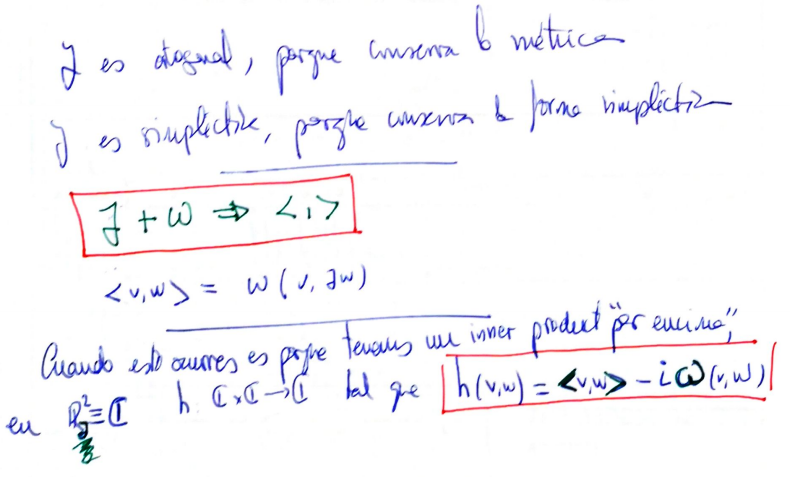 J es ortogonal, porque conserva la métrica
J es simpléctica, porque conserva la forma simpléctica
J + ω ⇒ <,>
<v,w> = ω(v, Jw)
Cuando esto ocurre es porque tenemos un inner product "por encima",
en R²_J ≡ ℂ h: ℂ×ℂ→ℂ tal que h(v,w) = <v,w> - iω(v,w)